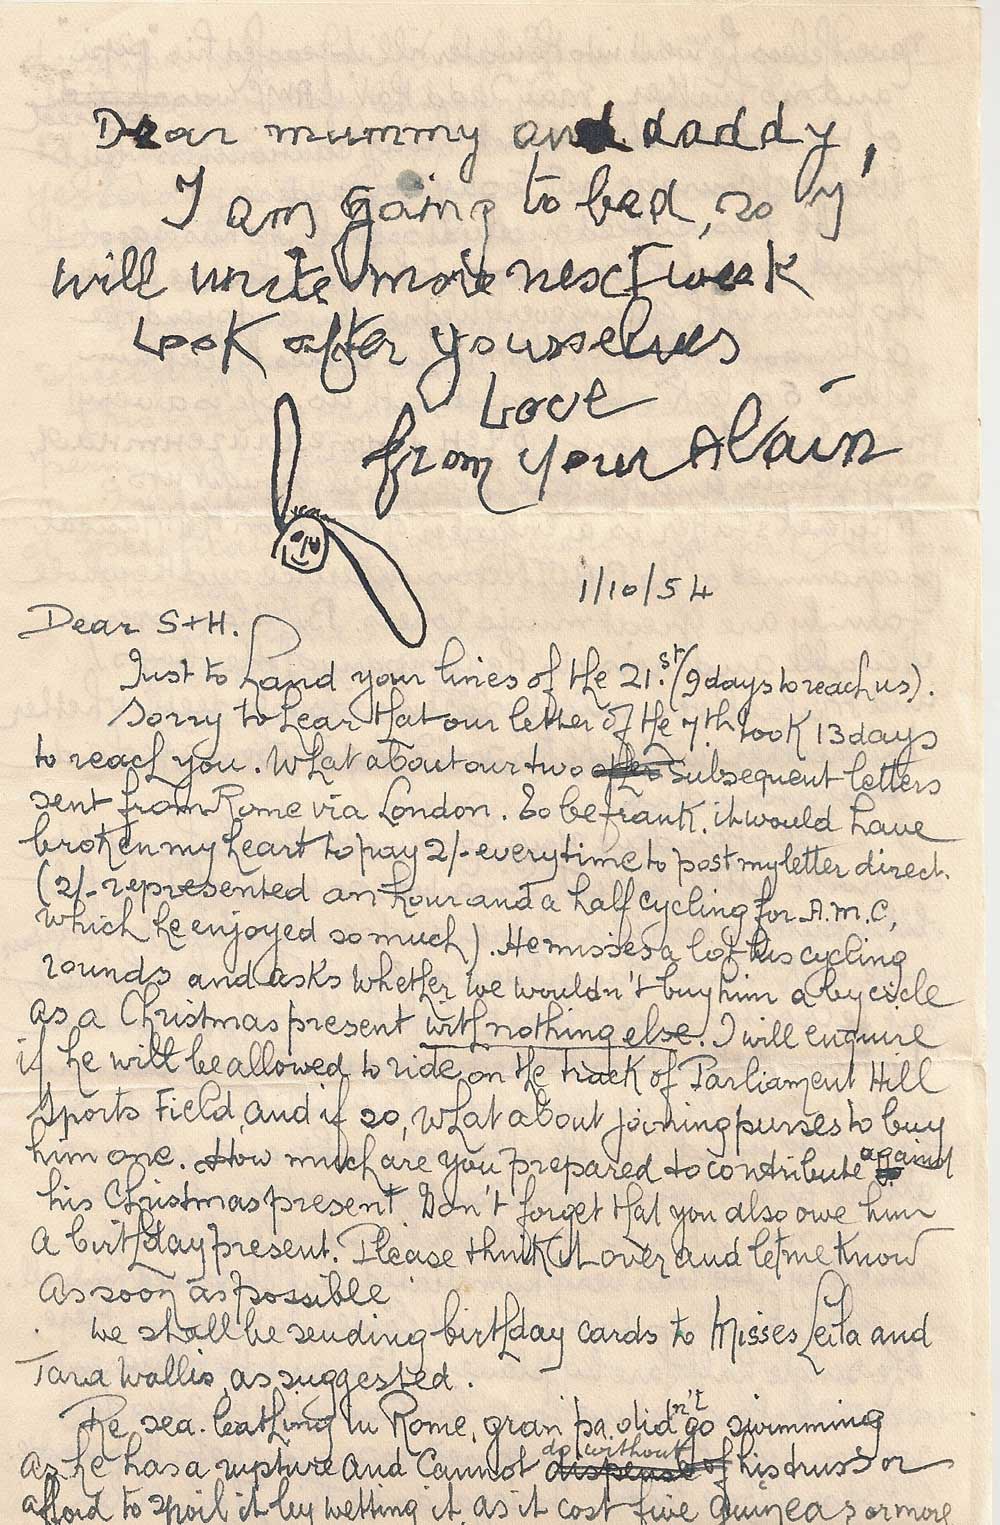 Dear mummy and daddy,
I am going to bed, so y
will write more next week
Look after yourselves
Love
from your Alain
1/10/54
Dear S+H.
Just to hand your lines of the 21.st (9 days to reach us).
Sorry to hear that our letter of the 7th took 13 days
to reach you. What about our two subsequent letters
sent from Rome via London. To be frank, it would have
broken my heart to pay 2/- everytime to post my letter direct.
(2/- represented an hour and a half cycling for A.M.C,
which he enjoyed so much). He misses a lot his cycling
rounds and asks whether we wouldn't buy him a bycicle
as a Christmas present with nothing else. I will enquire
if he will be allowed to ride on the track of Parliament Hill
Sports Field, and if so, what about joining purses to buy
him one. How much are you prepared to contribute against
his Christmas present. Don't forget that you also owe him
a birthday present. Please think it over and let me know
as soon as possible
We shall be sending birthday cards to Misses Leila and
Tara Wallis, as suggested.
Re sea-bathing in Rome, gran pa didn't go swimming
as he has a rupture and cannot do without dispense of his truss or
afford to spoil it by wetting it, as it cost five guineas or more